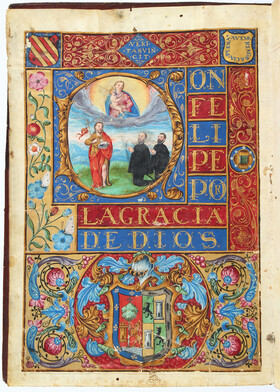 VERI
TAS VIN
CIT
DON
FELI
PE PO
R
LA GRACIA
DE DIOS